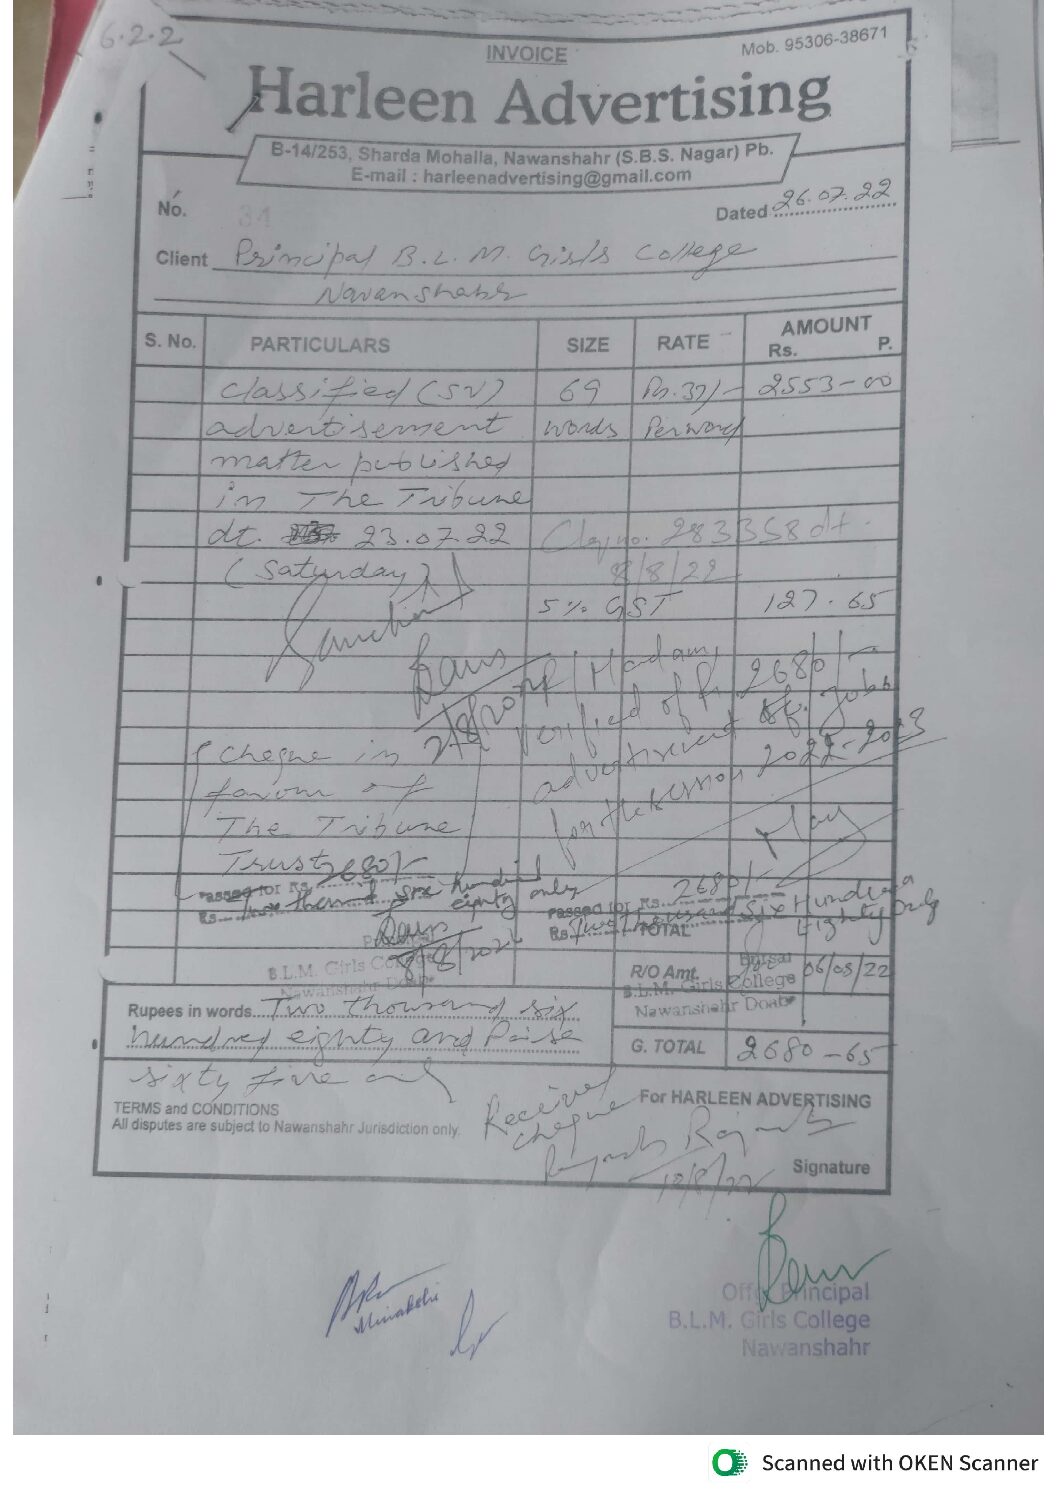 6.2.2
INVOICE
Mob. 95306-38671
Harleen Advertising
B-14/253, Sharda Mohalla, Nawanshahr (S.B.S. Nagar) Pb.
E-mail : harleenadvertising@gmail.com
No. 34
Dated 26.07.22
Client Principal B.L.M. Girls College
Nawanshahr
S. No. PARTICULARS SIZE RATE AMOUNT
Rs. P.
classified (SV) 69 Rs.37/- 2553-00
advertisement words Per word
matter published
in The Tribune
dt. 23.07.22 283358 dt.
(Saturday) 8/8/22
5% GST 127.65
Madam,
verified of Rs. 2680/-
advertisement of jobs
for the session 2022-2023
cheque in
favour of
The Tribune
Trust
Passed for Rs. 2680/-
Rs. Two thousand six hundred eighty only
Passed for Rs. 2680/-
Rs. Two Thousand Six Hundred Eighty only
TOTAL
8/8/2022
Principal
B.L.M. Girls College
Nawanshahr Doab
R/O Amt.
Bursar
B.L.M. Girls College
Nawanshahr Doab
06/08/22
Rupees in words Two thousand six
hundred eighty and Paise
sixty five only
G. TOTAL 2680-65
TERMS and CONDITIONS
All disputes are subject to Nawanshahr Jurisdiction only.
Received
cheque
For HARLEEN ADVERTISING
Signature
Minakshi
Principal
B.L.M. Girls College
Nawanshahr
Scanned with OKEN Scanner